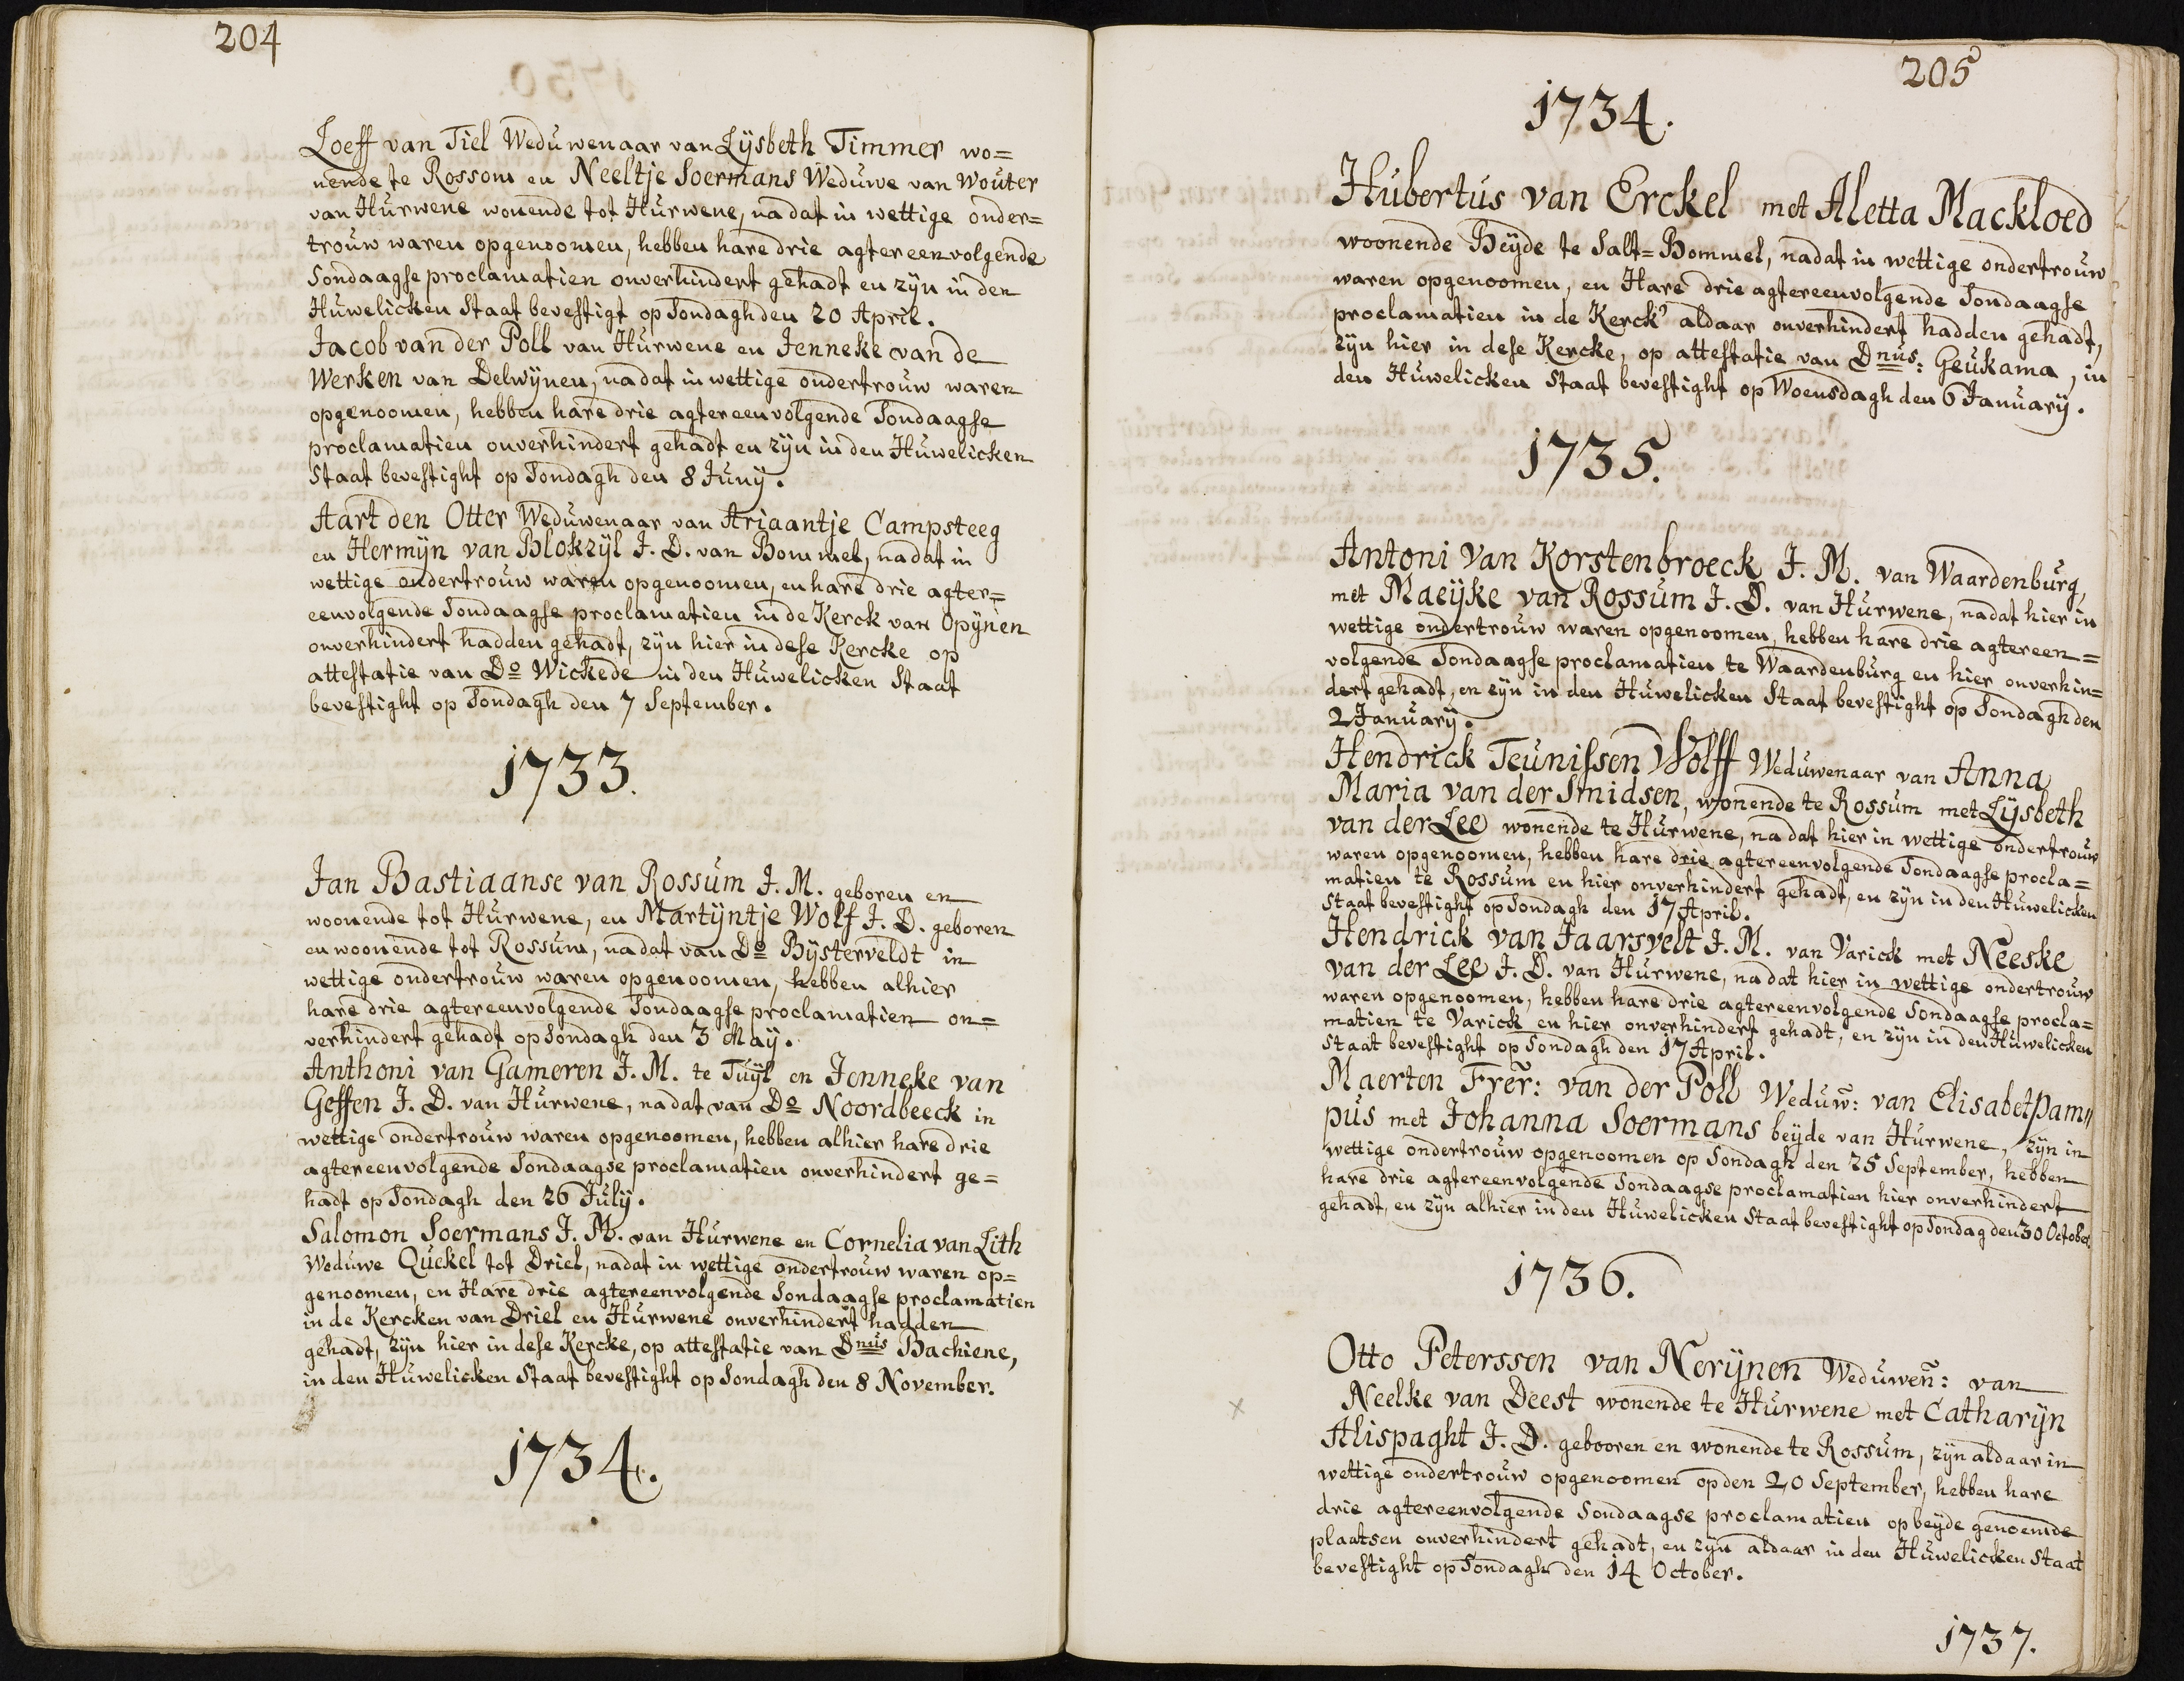 204
Loeff van Tiel Weduwenaar van Lijsbeth Timmer wo=
nende te Rossom en Neeltje Soermans Weduwe van Wouter
van Hurwene wonende tot Hurwene, na dat in wettige onder=
trouw waren opgenoomen, hebben hare drie agtereenvolgende
Sondaagse proclamatien onverhindert gehadt en zijn in den
Huwelicken Staat bevestigt op Sondagh den 20 April.
Jacob van der Poll van Hurwene en Jenneke van de
Werken van Delwijnen, na dat in wettige ondertrouw waren
opgenoomen, hebben hare drie agtereenvolgende Sondaagse
proclamatien onverhindert gehadt en zijn in den Huwelicken
Staat bevestight op Sondagh den 8 Junij.
Aart den Otter Weduwenaar van Ariaantje Campsteeg
en Hermijn van Blokzijl J. D. van Bommel, na dat in
wettige ondertrouw waren opgenoomen, en hare drie agter=
eenvolgende Sondaagse proclamatien in de Kerck van Opijnen
onverhindert hadden gehadt, zijn hier in dese Kercke op
attestatie van Do Wickede in den Huwelicken Staat
bevestight op Sondagh den 7 September.
1733.
Jan Bastiaanse van Rossum J. M. geboren en
woonende tot Hurwene, en Martijntje Wolf J. D. geboren
en woonende tot Rossum, na dat van Do Bijsterveldt in
wettige ondertrouw waren opgenoomen, hebben alhier
hare drie agtereenvolgende Sondaagse proclamatien on=
verhindert gehadt op Sondagh den 3 May.
Anthoni van Gameren J. M. te Tuijl en Jenneke van
Geffen J. D. van Hurwene, na dat van Do Noordbeeck in
wettige ondertrouw waren opgenoomen, hebben alhier hare drie
agtereenvolgende Sondaagse proclamatien onverhindert ge=
hadt op Sondagh den 26 Julij.
Salomon Soermans J. M. van Hurwene en Cornelia van Lith
Weduwe Quekel tot Driel, nadat in wettige ondertrouw waren op=
genoomen, en Hare drie agtereenvolgende Sondaagse proclamatien
in de Kercken van Driel en Hurwene onverhindert hadden
gehadt, zijn hier in dese Kercke, op attestatie van Dnus Bachiene,
in den Huwelicken Staat bevestight op Sondagh den 8 November.
1734.
205
1734.
Hubertus van Erckel met Aletta Mackloed
woonende Beijde te Salt=Bommel, nadat in wettige ondertrouw
waren opgenoomen, en Hare drie agtereenvolgende Sondaagse
proclamatien in de Kerck' aldaar onverhindert hadden gehadt,
zijn hier in dese Kercke, op attestatie van Dnus: Geukama, in
den Huwelicken Staat bevestight op Woensdagh den 6 Januarij.
1735.
Antoni Van Korstenbroeck J. M. van Waardenburg,
met Maeijke van Rossum J. D. van Hurwene, nadat hier in
wettige ondertrouw waren opgenoomen, hebben hare drie agtereen=
volgende Sondaagse proclamatien te Waardenburg en hier onverhin=
dert gehadt, en zijn in den Huwelicken Staat bevestight op Sondagh den
2 Januarij.
Hendrick Teunissen Wolff Weduwenaar van Anna
Maria van der Smidsen, wonende te Rossum met Lijsbeth
van der Lee wonende te Hurwene, na dat hier in wettige ondertrouw
waren opgenoomen, hebben hare drie agtereenvolgende Sondaagse procla=
matien te Rossum en hier onverhindert gehadt, en zijn in den Huwelicken
Staat bevestight op Sondagh den 17 April.
Hendrick van Jaarsvelt J. M. van Varick met Neeske
van der Lee J. D. van Hurwene, na dat hier in wettige ondertrouw
waren opgenoomen, hebben hare drie agtereenvolgende Sondaagse procla=
matien te Varick en hier onverhindert gehadt, en zijn in den Huwelicken
Staat bevestight op Sondagh den 17 April.
Maerten Frer: van der Poll Weduw: van Elisabet Pam"
pus met Johanna Soermans beijde van Hurwene, zijn in
wettige ondertrouw opgenoomen op Sondagh den 25 September, hebben
hare drie agtereenvolgende Sondaagse proclamatien hier onverhindert
gehadt, en zijn alhier in den Huwelicken Staat bevestight op Sondag den 30 October.
1736.
Otto Peterssen van Nerijnen Weduwen: van
× Neelke van Deest wonende te Hurwene met Catharijn
Alispaght J. D. gebooren en wonende te Rossum, zijn aldaar in
wettige ondertrouw opgenoomen op den 20 September, hebben hare
drie agtereenvolgende Sondaagse proclamatien op beijde genoemde
plaatsen onverhindert gehadt, en zijn aldaar in den Huwelicken Staat
bevestight op Sondagh den 14 October.
1737.